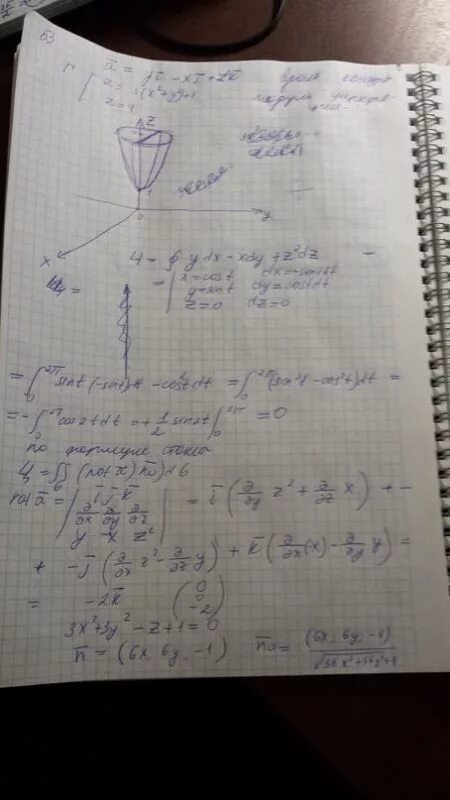 53
ā = yī - xj̄ + z²k̄
z = 3(x²+y²)+1
z = 4
модуль циркуля-
ции
z
1
0
y
x
Ц = ∮ y dx - x dy + z² dz =
= | x = cos t  dx = -sin t dt
y = sin t  dy = cos t dt
z = 0  dz = 0
= ∫₀^2π sin t (-sin t) dt - cos² t dt = ∫₀^2π (sin² t - cos² t) dt =
= -∫₀^2π cos 2t dt = + 1/2 sin 2t |₀^2π = 0
по формуле Стокса
Ц = ∬ (rot ā) n̄₀) dб
rot ā = | ī j̄ k̄ ; ∂/∂x ∂/∂y ∂/∂z ; y -x z² | = ī (∂/∂y z² + ∂/∂z x) + -
+ -j̄ (∂/∂x z² - ∂/∂z y) + k̄ (∂/∂x (x) - ∂/∂y y) =
= -2k̄ (0 0 -2)
3x²+3y² - z + 1 = 0
n̄ = (6x, 6y, -1)  n̄₀ = (6x, 6y, -1) / √36x²+36y²+1